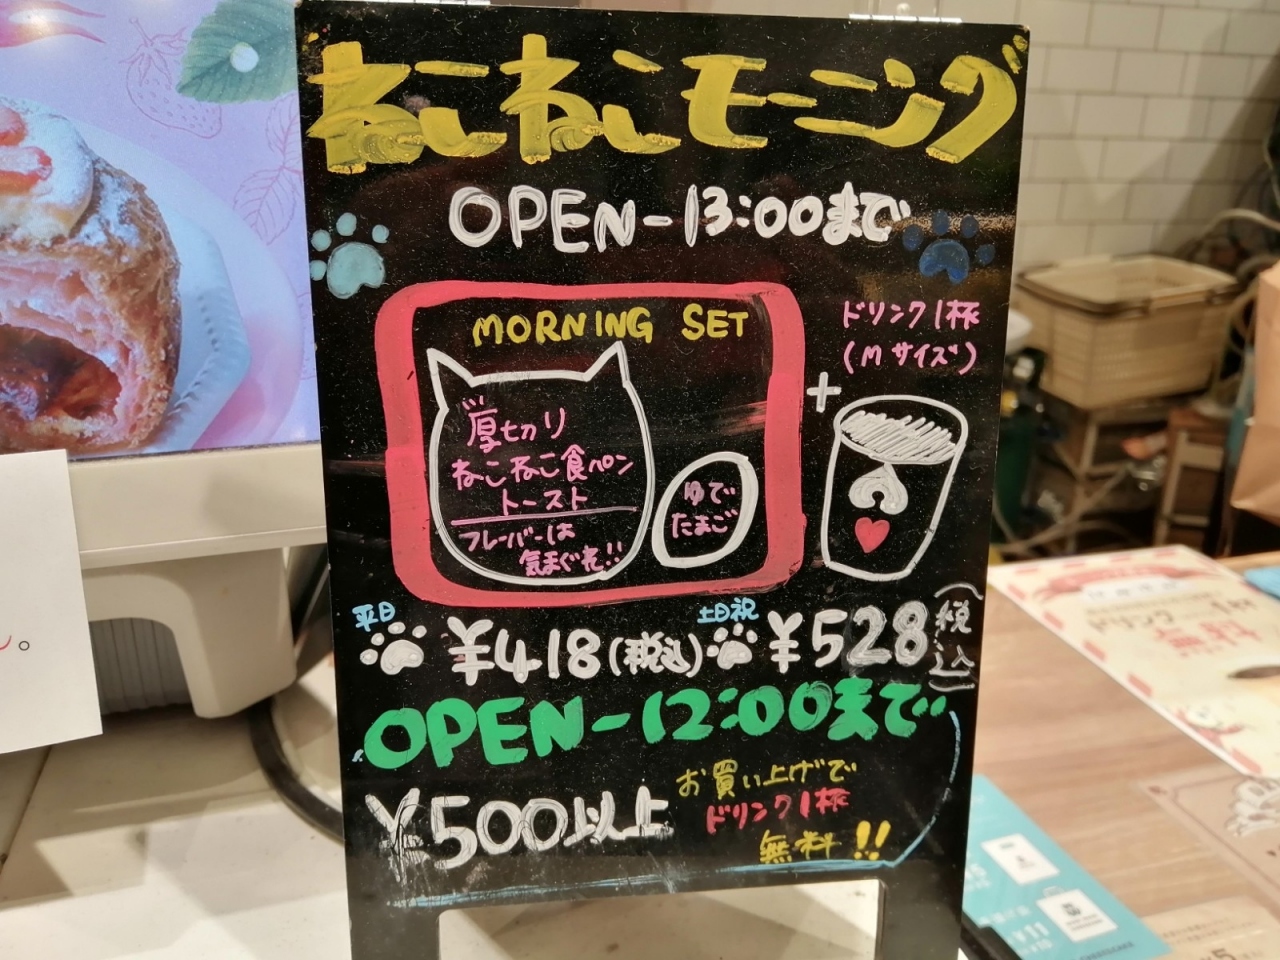 ねこねこモーニング
OPEN-13:00まで
MORNING SET
厚切り
ねこねこ食パン
トースト
フレーバーは
気まぐれ!!
ゆで
たまご
+
ドリンク1杯
(Mサイズ)
平日
¥418(税込)
土日祝
¥528(税込)
OPEN-12:00まで
¥500以上
お買い上げで
ドリンク1杯
無料!!
ドリンク
無料